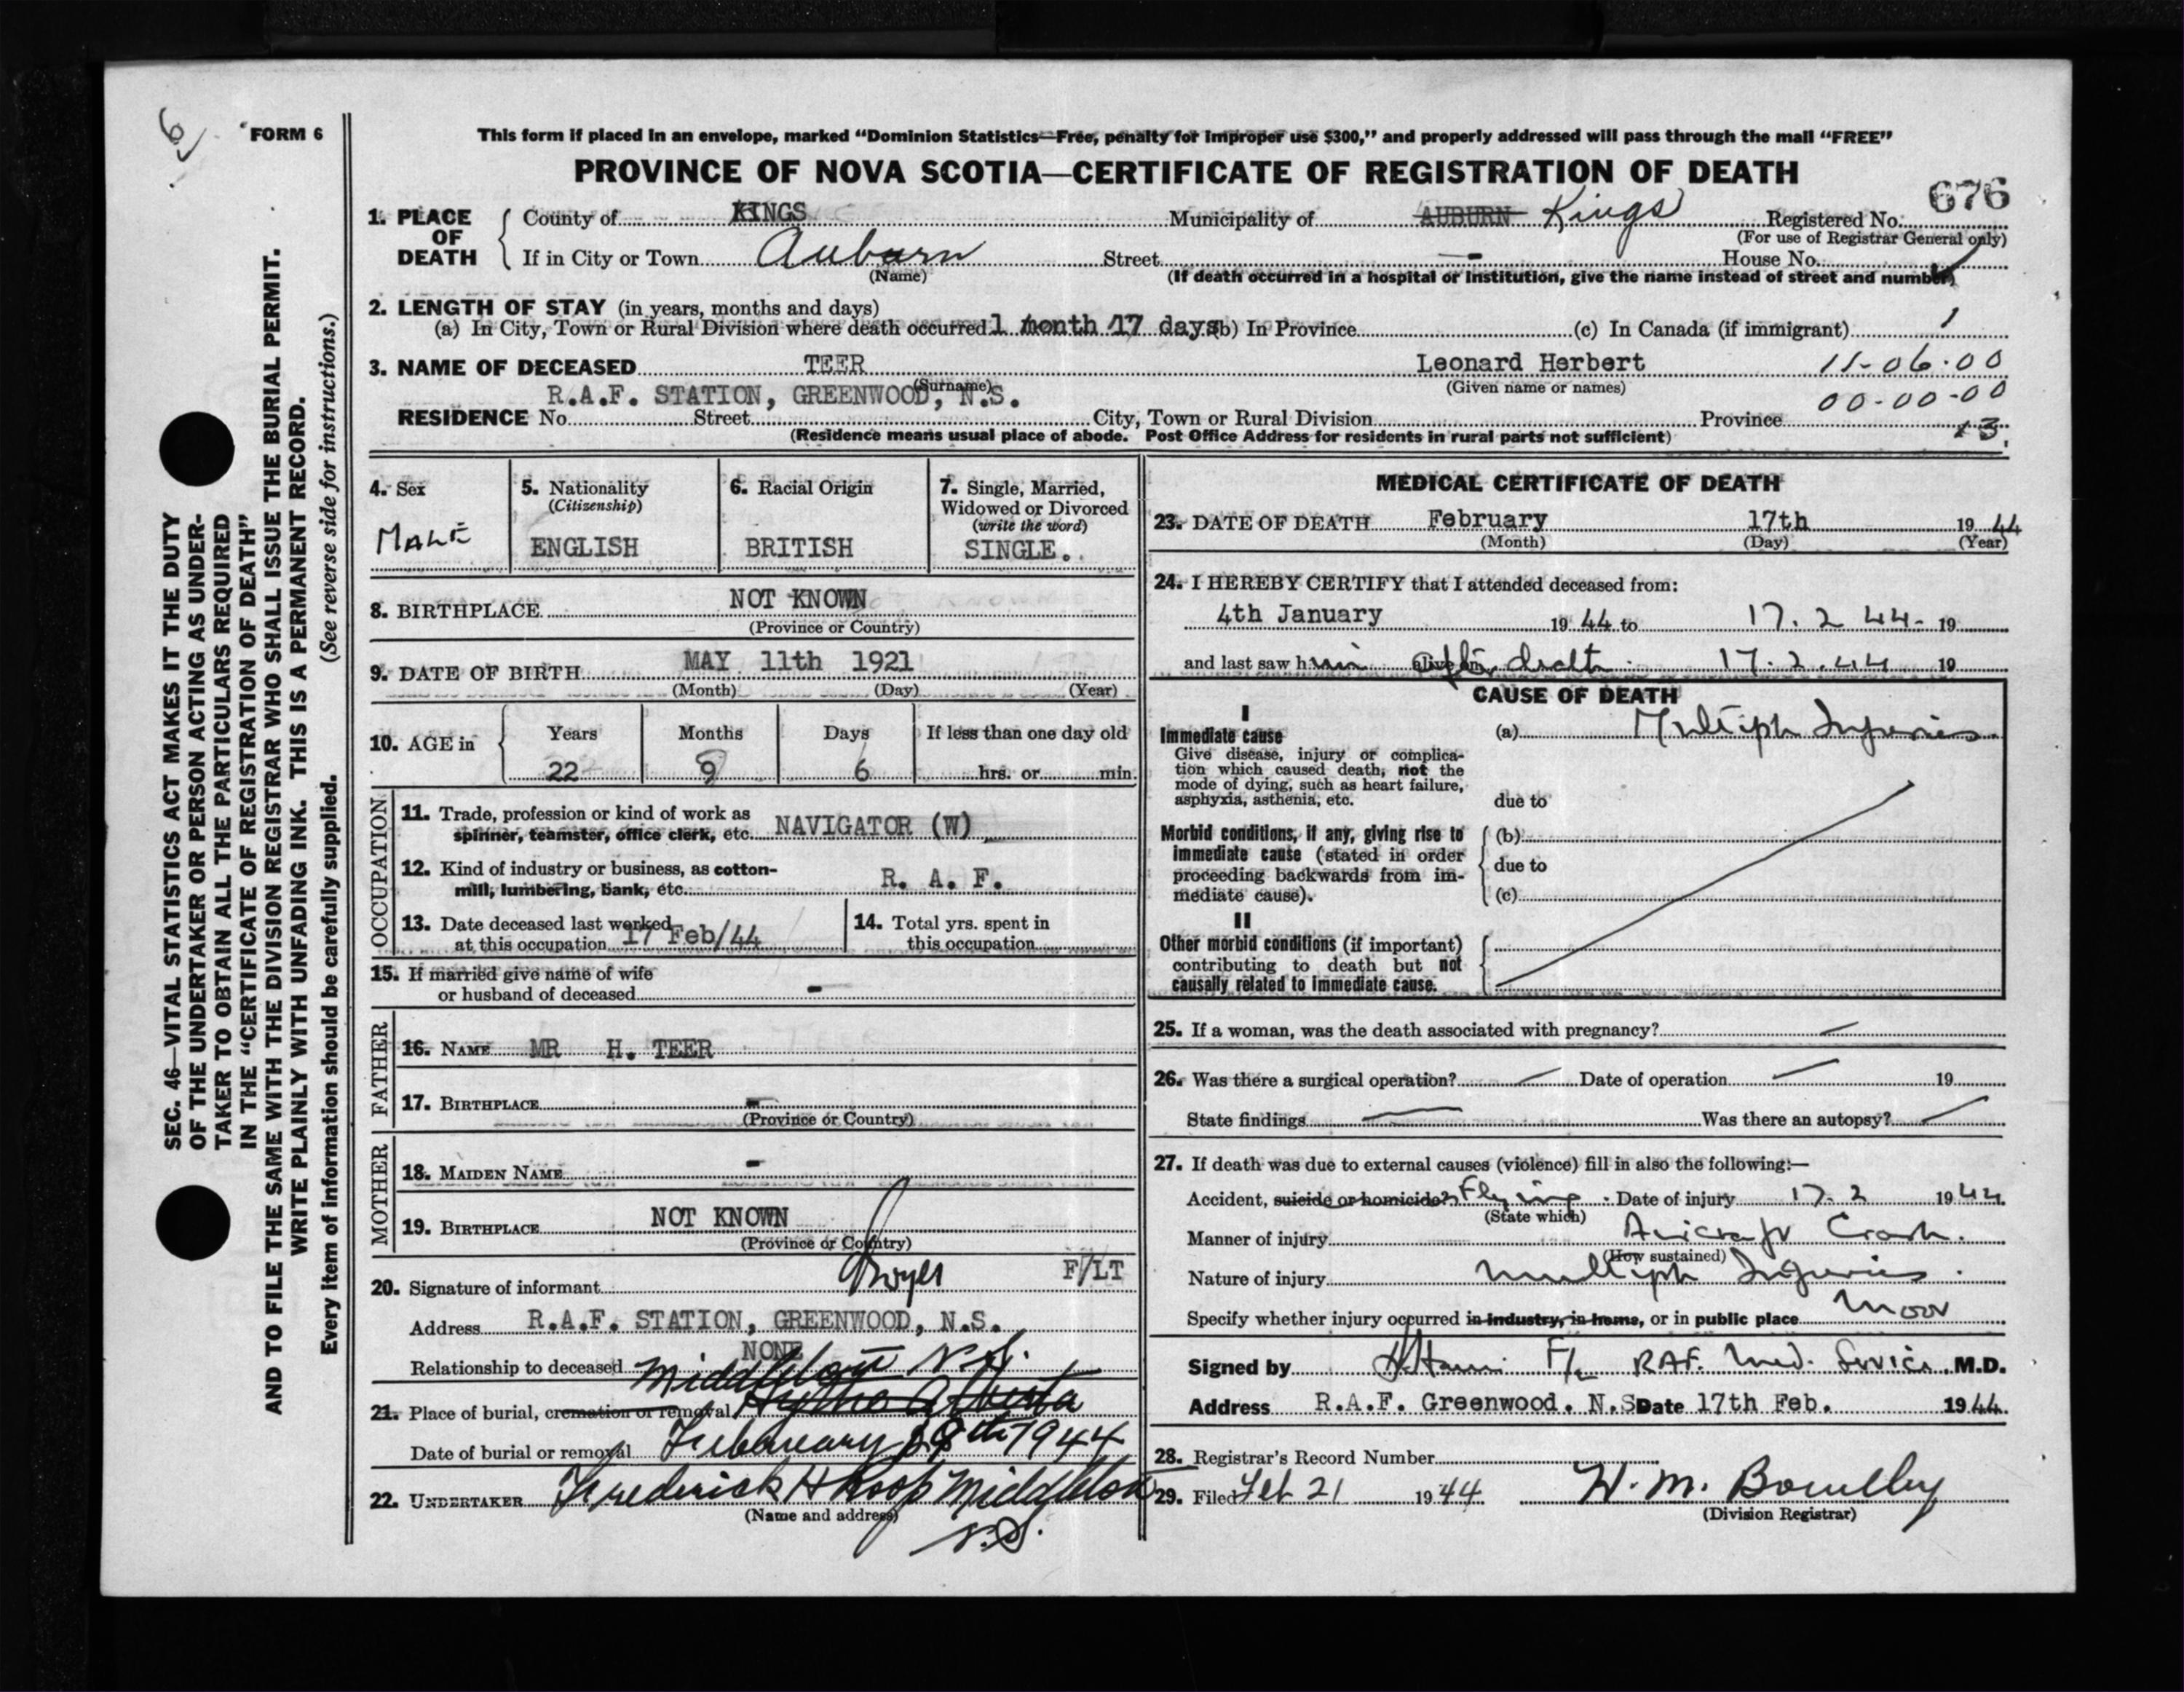 6
FORM 6
This form if placed in an envelope, marked “Dominion Statistics—Free, penalty for improper use $300,” and properly addressed will pass through the mail “FREE”
PROVINCE OF NOVA SCOTIA—CERTIFICATE OF REGISTRATION OF DEATH
676
1. PLACE OF DEATH County of KINGS Municipality of AUBURN Kings Registered No.
(For use of Registrar General only)
If in City or Town Auburn Street - House No.
(Name) (If death occurred in a hospital or institution, give the name instead of street and number)
2. LENGTH OF STAY (in years, months and days)
(a) In City, Town or Rural Division where death occurred 1 month 17 days (b) In Province (c) In Canada (if immigrant) 1
3. NAME OF DECEASED TEER Leonard Herbert 11-06-00
(Surname) (Given name or names)
R.A.F. STATION, GREENWOOD, N.S. 00-00-00
RESIDENCE No. Street City, Town or Rural Division Province
(Residence means usual place of abode. Post Office Address for residents in rural parts not sufficient) 13
4. Sex MALE
5. Nationality (Citizenship) ENGLISH
6. Racial Origin BRITISH
7. Single, Married, Widowed or Divorced (write the word) SINGLE.
8. BIRTHPLACE NOT KNOWN
(Province or Country)
9. DATE OF BIRTH MAY 11th 1921
(Month) (Day) (Year)
10. AGE in Years Months Days If less than one day old
22 9 6 hrs. or min.
OCCUPATION
11. Trade, profession or kind of work as
spinner, teamster, office clerk, etc. NAVIGATOR (W)
12. Kind of industry or business, as cotton-
mill, lumbering, bank, etc. R. A. F.
13. Date deceased last worked
at this occupation 17 Feb/44
14. Total yrs. spent in
this occupation
15. If married give name of wife
or husband of deceased -
FATHER
16. NAME MR H. TEER
17. BIRTHPLACE -
(Province or Country)
MOTHER
18. MAIDEN NAME -
19. BIRTHPLACE NOT KNOWN
(Province or Country)
20. Signature of informant F/LT
Address R.A.F. STATION, GREENWOOD, N.S.
Relationship to deceased NONE
Middleton N.S.
21. Place of burial, cremation or removal Hythe Alberta
Date of burial or removal February 1944
22. UNDERTAKER Frederick H Roop Middleton
(Name and address)
N.S.
MEDICAL CERTIFICATE OF DEATH
23. DATE OF DEATH February 17th 1944
(Month) (Day) (Year)
24. I HEREBY CERTIFY that I attended deceased from:
4th January 1944 to 17. 2 44- 19
and last saw him alive on after death. 17.2.44 19
CAUSE OF DEATH
I
Immediate cause (a) Multiple Injuries.
Give disease, injury or complica-
tion which caused death, not the
mode of dying, such as heart failure,
asphyxia, asthenia, etc. due to
Morbid conditions, if any, giving rise to (b)
immediate cause (stated in order
proceeding backwards from im- due to
mediate cause). (c)
II
Other morbid conditions (if important)
contributing to death but not
causally related to immediate cause.
25. If a woman, was the death associated with pregnancy? —
26. Was there a surgical operation? — Date of operation — 19
State findings — Was there an autopsy? —
27. If death was due to external causes (violence) fill in also the following:—
Accident, suicide or homicide? Flying. Date of injury 17.2 1944
(State which)
Manner of injury Aircraft Crash.
(How sustained)
Nature of injury Multiple Injuries.
Specify whether injury occurred in industry, in home, or in public place Moor
Signed by F/L RAF. Med. Service M.D.
Address R.A.F. Greenwood. N.S Date 17th Feb. 1944.
28. Registrar's Record Number
29. Filed Feb 21 1944 H. M.
(Division Registrar)
SEC. 46—VITAL STATISTICS ACT MAKES IT THE DUTY
OF THE UNDERTAKER OR PERSON ACTING AS UNDER-
TAKER TO OBTAIN ALL THE PARTICULARS REQUIRED
IN THE “CERTIFICATE OF REGISTRATION OF DEATH”
AND TO FILE THE SAME WITH THE DIVISION REGISTRAR WHO SHALL ISSUE THE BURIAL PERMIT.
WRITE PLAINLY WITH UNFADING INK. THIS IS A PERMANENT RECORD.
Every item of information should be carefully supplied. (See reverse side for instructions.)